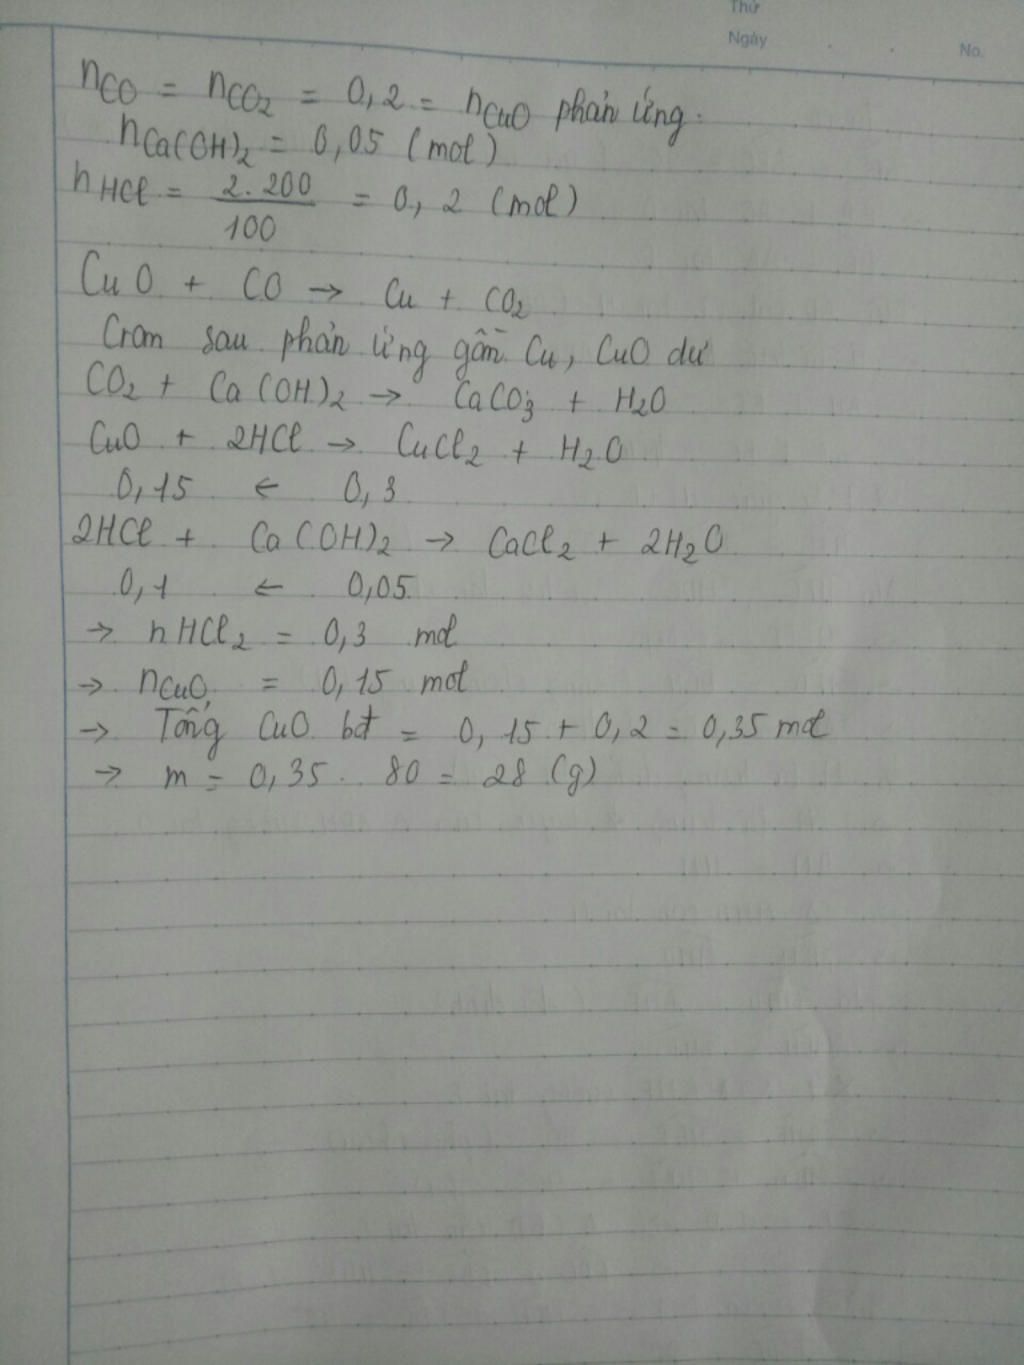 Thứ
Ngày No.
nCO = nCO2 = 0,2 = nCuO phản ứng.
nCa(OH)2 = 0,05 (mol)
nHCl = 2.200/100 = 0,2 (mol)
CuO + CO → Cu + CO2
Cran sau phản ứng gồm Cu, CuO dư
CO2 + Ca(OH)2 → CaCO3 + H2O
CuO + 2HCl → CuCl2 + H2O
0,15 ← 0,3
2HCl + Ca(OH)2 → CaCl2 + 2H2O
0,1 ← 0,05
→ nHCl2 = 0,3 mol
→ nCuO = 0,15 mol
→ Tổng CuO bđ = 0,15 + 0,2 = 0,35 mol
→ m = 0,35 . 80 = 28 (g)